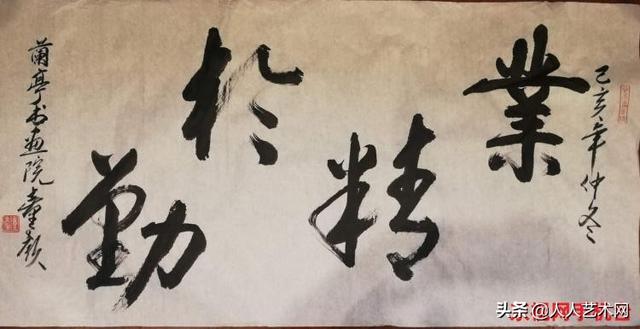 己亥年仲冬
業精於勤
蘭亭书画院
头条 @人人艺术网